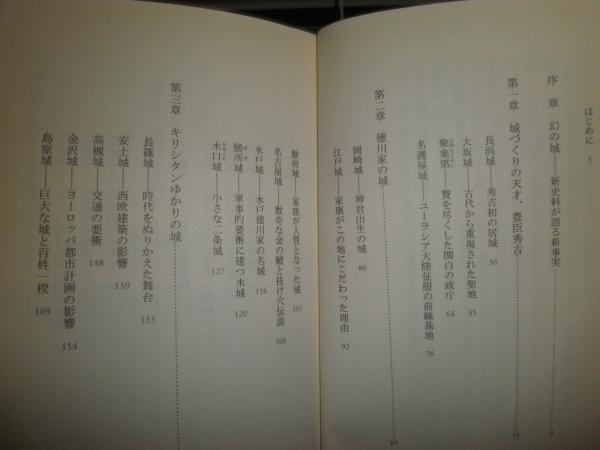 はじめに 3
序章 幻の城――新史料が語る新事実 9
第一章 城づくりの天才、豊臣秀吉 35
長浜城――秀吉初の居城 36
大坂城――古代から重視された聖地 45
聚楽第――贅を尽くした関白の政庁 64
名護屋城――ユーラシア大陸征服の前線基地 76
第二章 徳川家の城 85
岡崎城――神君出生の城 86
江戸城――家康がこの地にこだわった理由 92
駿府城――家康が人質となった城 103
名古屋城――数奇な金の鯱と抜け穴伝説 106
水戸城――水戸徳川家の名城 116
膳所城――軍事的要衝に建つ水城 120
水口城――小さな二条城 127
第三章 キリシタンゆかりの城
長篠城――時代をぬりかえた舞台 133
安土城――西欧建築の影響 139
高槻城――交通の要衝 148
金沢城――ヨーロッパ都市計画の影響 154
島原城――巨大な城と百姓一揆 169